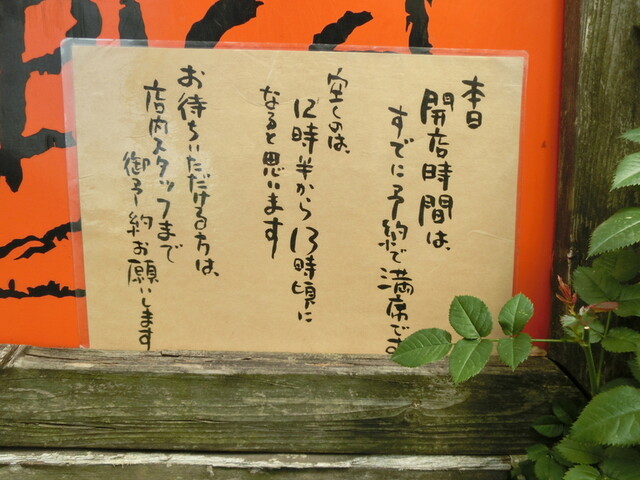 本日
開店時間は、
すでに予約で満席です
空くのは、
12時半から13時頃に
なると思います
お待ちいただける方は、
店内スタッフまで
御予約お願いします